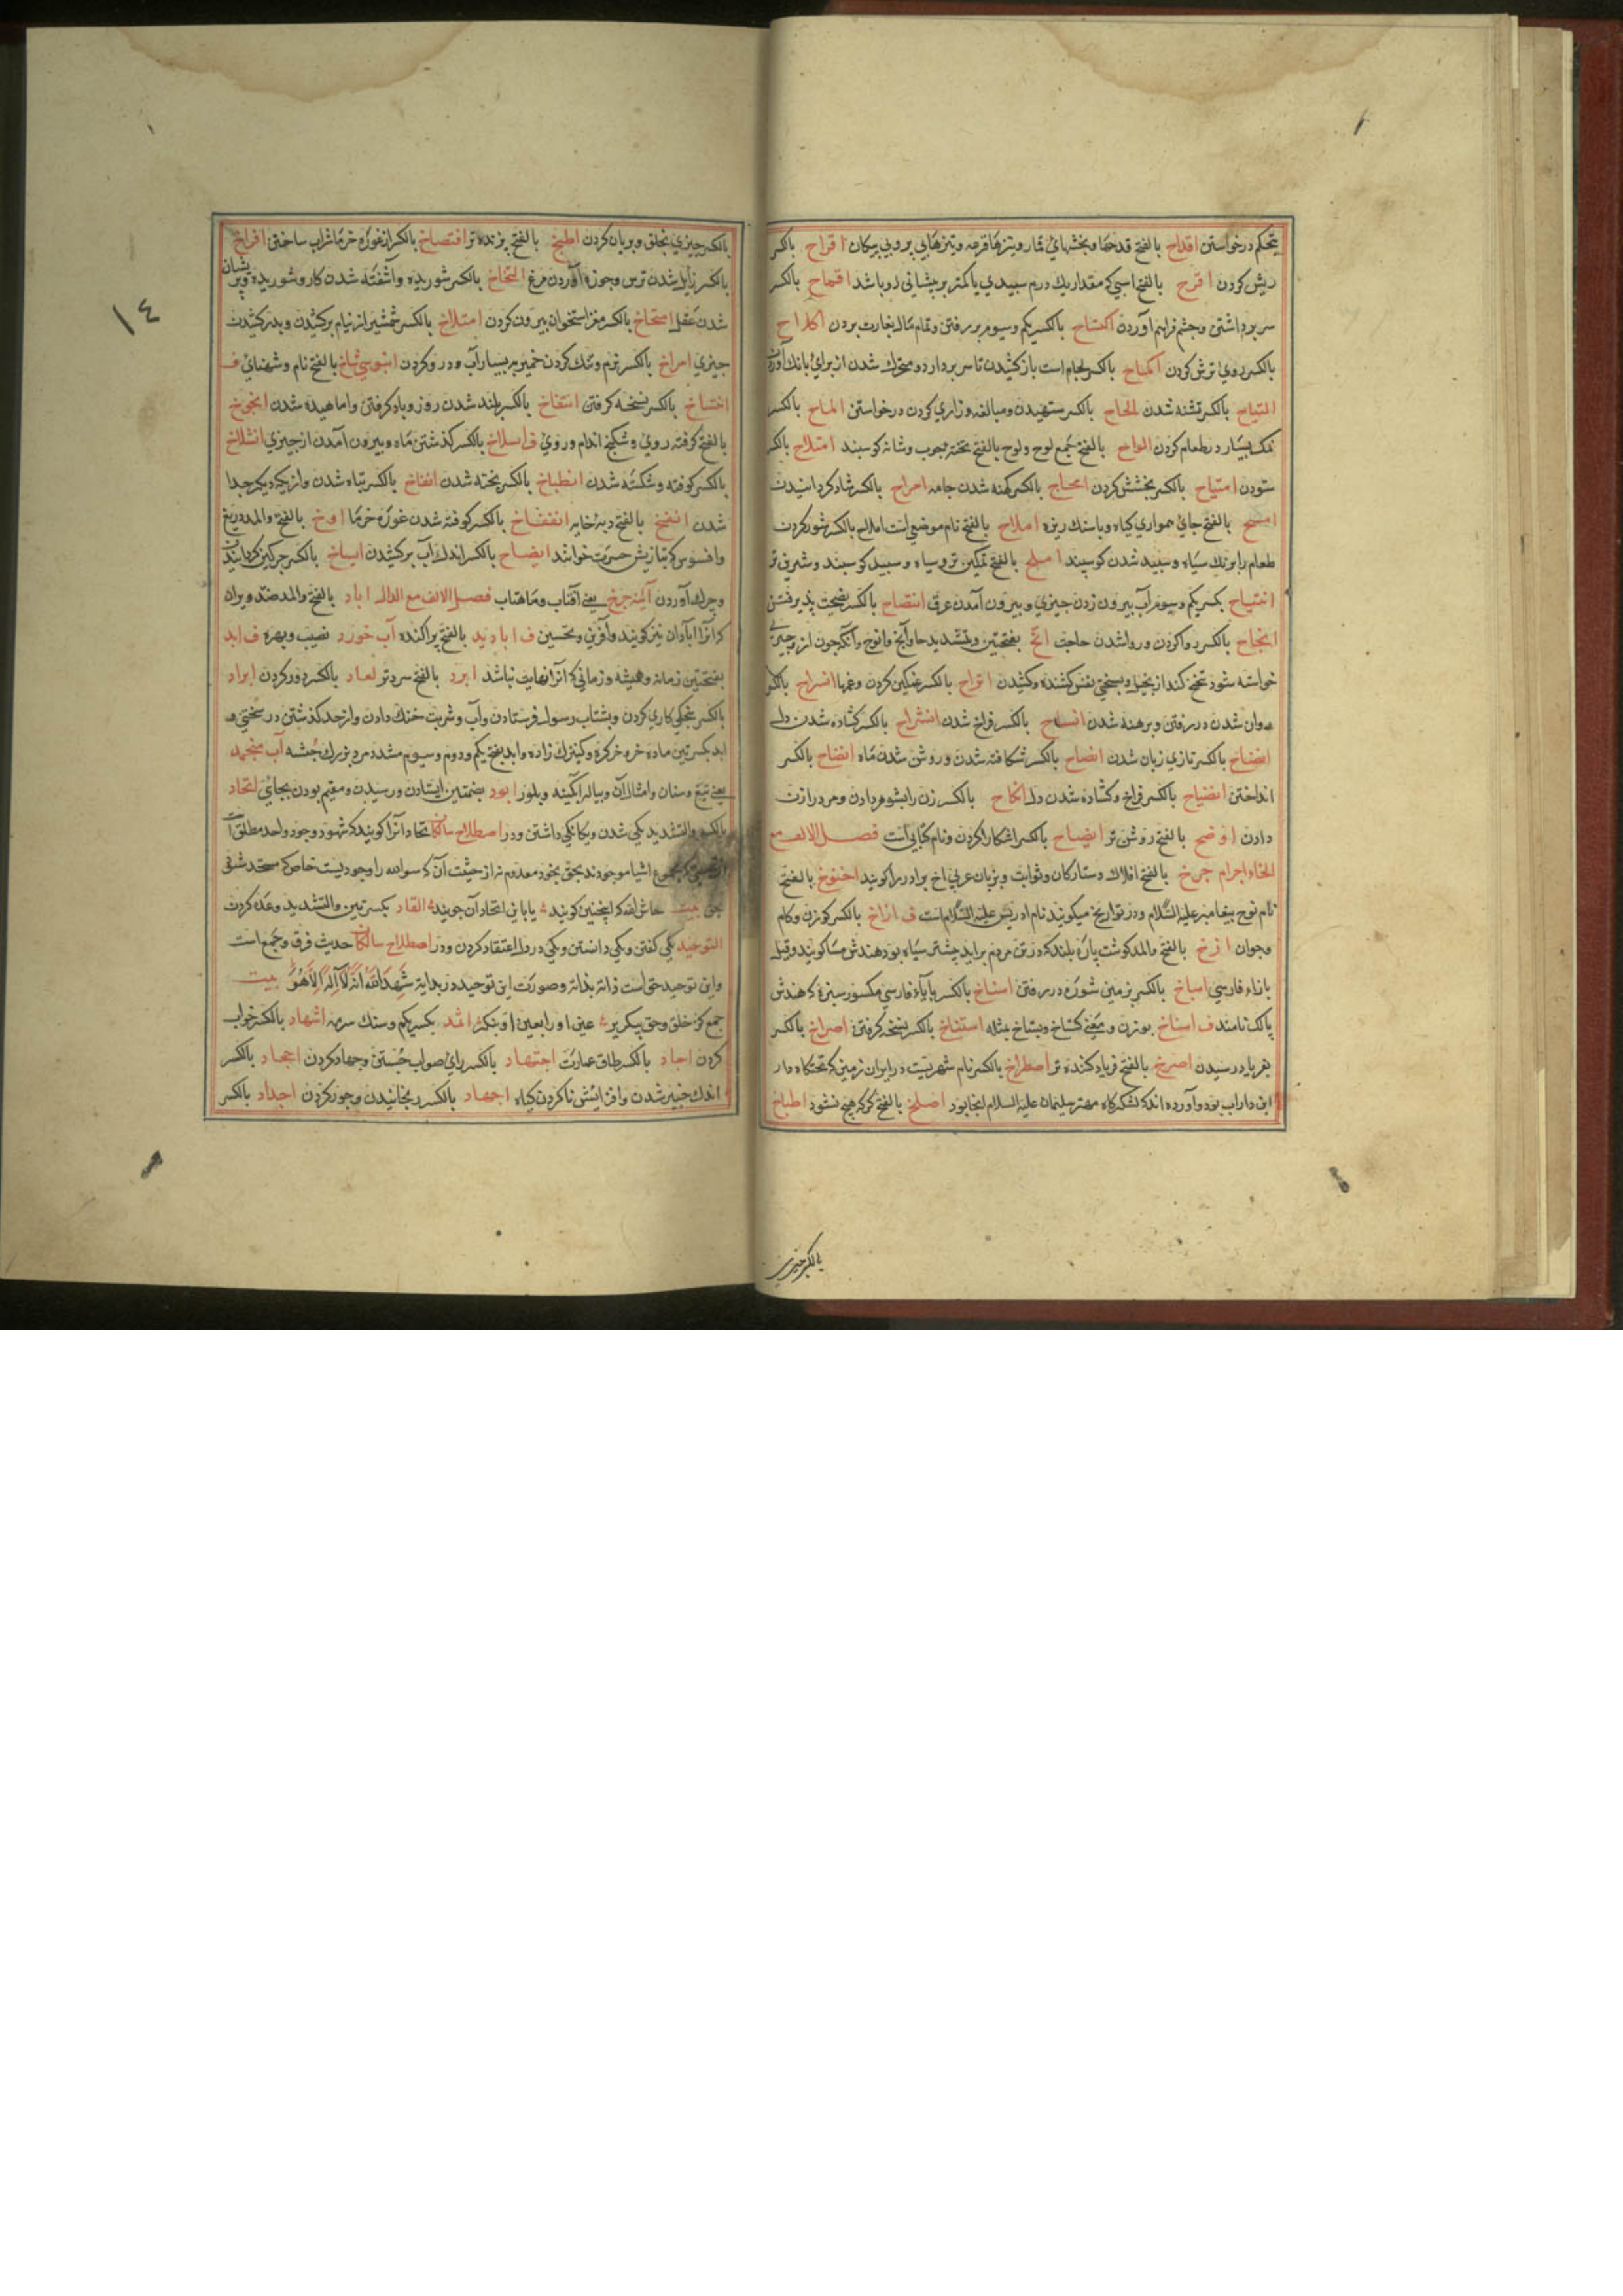 بتحکم درخواستن اقداح بالفتح قدحها و بخشهای قمار و تیرها قرعه و تیرهای بی پر و بی پیکان اقراح بالکسر
ریش کردن اقرح بالفتح اسپی که مقدار یك درم سپیدی یا کمتر بر پیشانی او باشد اقماح بالکسر
سر برداشتن و چشم فراهم آوردن اکتساح بالکسر یکم و سیوم بر رفتن و تمام مال بغارت بردن اکلاح
بالکسر روی ترش کردن اکماح بالکسر لجام است باز کشیدن تا سر بردارد و متحرك شدن از برای بانك
التیاح بالکسر تشنه شدن الحاح بالکسر ستهیدن و مبالغه و زاری کردن درخواستن الماح بالکسر
نمك بسیار در طعام کردن الواح بالفتح جمع لوح و لوح بالفتح تخته چوب و شانه کوسبند امتلاح بالکسر
ستودن امتیاح بالکسر بخشش کردن امحاح بالکسر کهنه شدن جامه امراح بالکسر شاد کردانیدن
امسح بالفتح جای همواری کیاه و باسنك ریزه املاح بالفتح نام موضعی است املاح بالکسر شور کردن
طعام را برنك سیاه و سپید شدن کوسپند املح بالفتح نمکین تر و سیاه و سپید کوسپند و شیرین تر
بکسر یکم و سیوم آب بیرون زدن چیزی و بیرون آمدن عرق انتصاح بالکسر نصیحت پذیرفتن
انجاح بالکسر روا کردن و روا شدن حاجت انح بفتحتین و تشدید حا و آنکه چون از و چیزی
خواسته شود تنحنح کند از بخل و بسختی نفس کشنده و کشیدن اتراح بالکسر غمکین کردن انسراح بالکسر
روان شدن در رفتن و برهنه شدن انساح بالکسر فراخ شدن انشراح بالکسر کشاده شدن دل
افصاح بالکسر تازی زبان شدن انضاح بالکسر شکافته شدن و روشن شدن ماه انضاح بالکسر
انداختن انفتاح بالکسر فراخ و کشاده شدن دل انکاح بالکسر زن را بشوهر دادن و مرد را زن
دادن اوضح بالفتح روشن تر ایضاح بالکسر اشکارا کردن و نام کتابی است فصل الالف مع
الخاء اجرام چرخ بالفتح افلاك و ستارکان و ثوابت و بزبان عربی اخ برادر را کویند اخنوخ بالفتح
نام نوح پیغامبر علیه السلام و در تواریخ میکویند نام ادریس علیه السلام است ف اراخ بالکسر کوزن و کام
و جوان ازخ بالفتح و المد کوشت پاره بلند که در تن مردم براید بیشتر سیاه بود هندش مسا کویند و قیل
بازاء فارسی اسباخ بالکسر بزمین شوره در رفتن اسناخ بالکسر با یاء فارسی مکسور سبزه که هندش
پالك نامند ف استاخ بوزن و معنی کستاخ و بستاخ مثله استنتاخ بالکسر نسخه کرفتن اصراخ بالکسر
بفریاد رسیدن اصرخ بالفتح فریاد کننده تر اصطراخ بالکسر نام شهریست در ایران زمین که تختکاه دار
ابن داراب بود و آورده اند که لشکرکاه مهتر سلیمان علیه السلام اینجا بود اصلخ بالفتح کر که هیچ نشنود اطباخ
بالکسر چیزی
بالکسر چیزی پختن و بریان کردن اطبخ بالفتح پزنده تر افتضاخ بالکسر از غوره خرما شراب ساختن افراخ
بالکسر زایل شدن ترس و چوزه آوردن مرغ التخاخ بالکسر شوریده و آشفته شدن کار و شوریده و پریشان
شدن عقل امتخاخ بالکسر مغز استخوان بیرون کردن امتلاخ بالکسر شمشیر از نیام برکشیدن و بدر کشیدن
چیزی امراخ بالکسر نرم و تنك کردن خمیر به بسیار آب و درو کردن بالفتح نام و شهنائی ف
انتساخ بالکسر نسخه کرفتن انتفاخ بالکسر بلند شدن روز و باد کرفتن و اماهیده شدن انجوخ
بالفتح کرفته روی و شکنج اندام و روی ف انسلاخ بالکسر کذشتن ماه و بیرون آمدن از چیزی انشلاخ
بالکسر کوفته و شکسته شدن انطباخ بالکسر پخته شدن انفاخ بالکسر تباه شدن و از یکدیکر جدا
شدن انفخ بالفتح دبه خایه انفضاخ بالکسر کوفته شدن غوره خرما اوخ بالفتح و المد دریغ
و افسوس که بتازیش حسرت خوانند ایضاخ بالکسر اندك آب برکشیدن ایساخ بالکسر چرکین کردانیدن
و چرك آوردن آئینه چرخ یعنی آفتاب و ماهتاب فصل الالف مع الدال اباد بالفتح و المد ضد ویران
که آنرا آبادان نیز کویند و آفرین و تحسین ف ابادید بالفتح پراکنده آب خورد نصیب و بهره ف ابد
بفتحتین زمانه و همیشه و زمانی که آنرا نهایت نباشد ابرد بالفتح سردتر ابعاد بالکسر دور کردن ابراد
بالکسر بخنکی کاری کردن و بشتاب رسول فرستادن و آب و شربت خنك دادن و از حد کذشتن در سختی و
ابد بکسرتین ماده خر و خر کره و کنیزك زاده و ابد بفتح یکم و دوم و سیوم مشدد مرد بزرك جثه آب منجمد
یعنی تیغ و سنان و امثال آن و پیاله آبکینه و بلور ابود بضمتین ایستادن و رسیدن و مقیم بودن بجائی اتحاد
بالکسر و التشدید یکی شدن و یکانکی داشتن و در اصطلاح سالکان اتحاد آنرا کویند که شهود وجود واحد مطلق است
اشیا موجودند بحق بخود معدوم نه از حیثیت آن که سوای الله را وجودیست خاص که متحد شد
حق بیت حاش لله که اینچنین کویند یا بانی اتحاد آن جویند القاد بکسرتین و التشدید وعده کردن
التوحید یکی کفتن و یکی دانستن و یکی در دل اعتقاد کردن و در اصطلاح سالکان حدیث فرق و جمع است
و این توحید حق است ذاته بذاته و صورت این توحید در بدایة شَهِدَ اللّٰهُ اَنَّهُ لَا اِلٰهَ اِلَّا هُوَ بیت
جمع کن خلق و حق بیکریر عین او را بعین او بنکر اثمد بکسر یکم و سنك سرمه اشهاد بالکسر خواب
کردن اجاد بالکسر طاق عمارت اجتهاد بالکسر رای صواب جستن و جهاد کردن اجحاد بالکسر
اندك خیر شدن و افزایش ناکردن کیاه اجهاد بالکسر رنجانیدن و جور کردن اجداد بالکسر
١٤